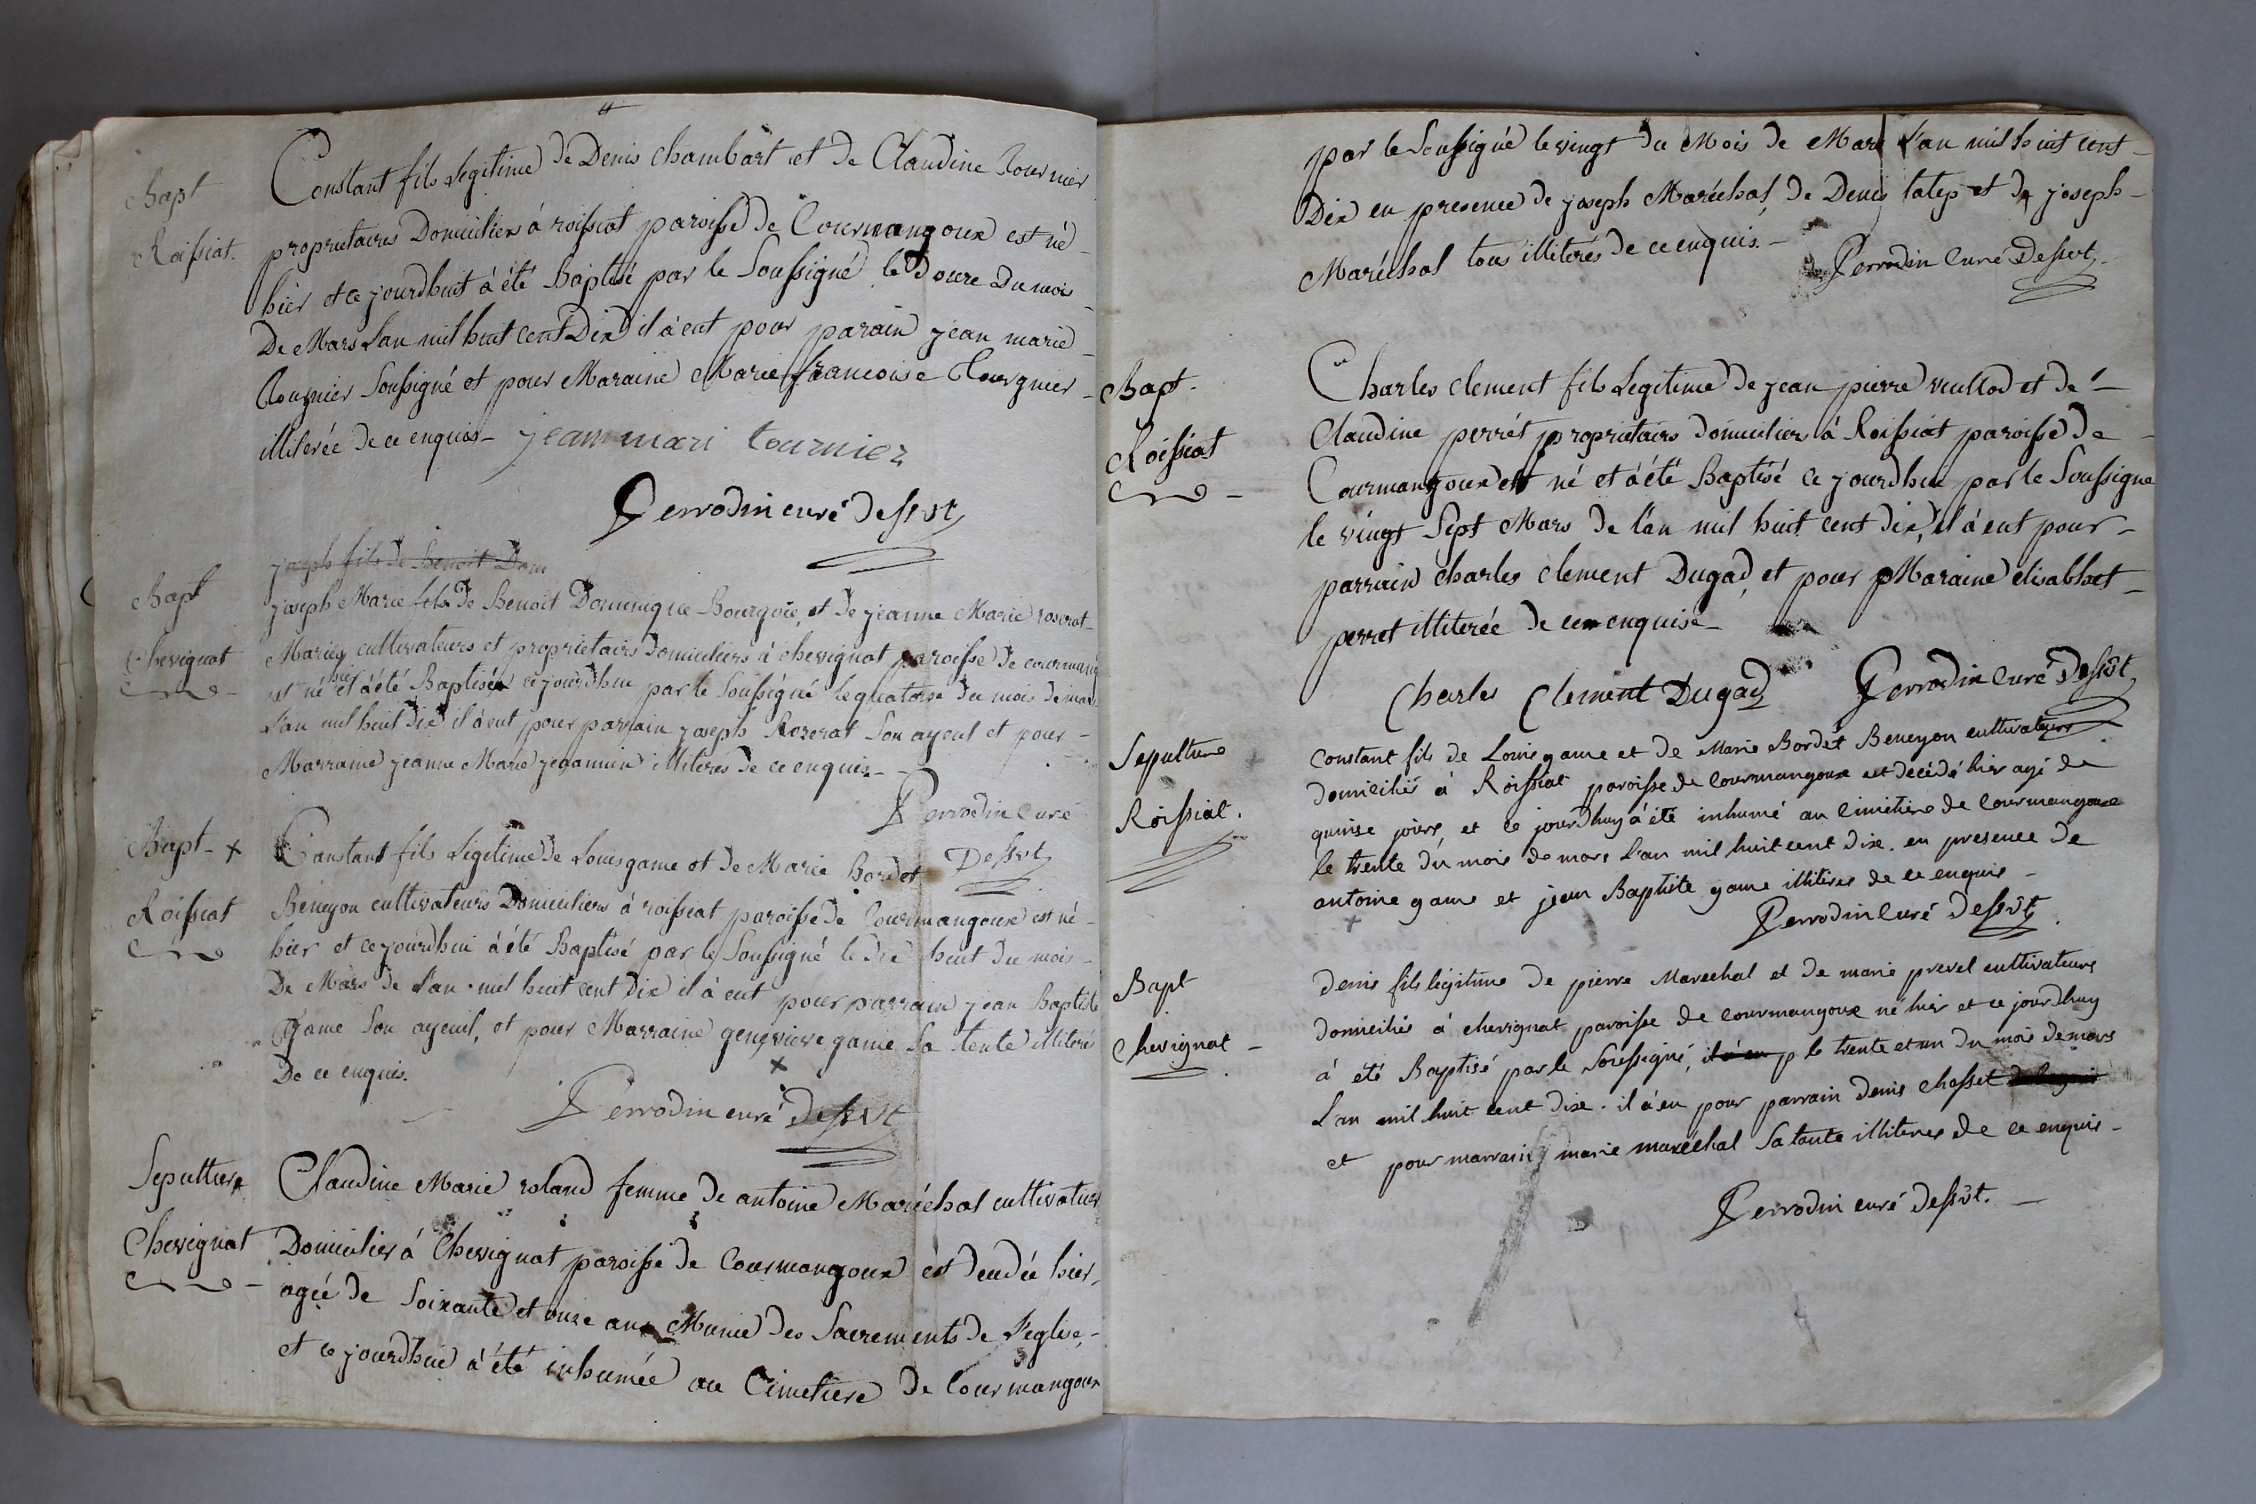 Bapt
Roissiat.
Constant fils Legitime de Denis Chambart et de Claudine Tournier
proprietaires Domiciliers à roissiat paroisse de Courmangoux est né
hier et ce jourdhuit à été Baptisé par le Soussigné le Douze Du mois
De Mars L'an mil huit cent Dix il à eut pour parain jean marie
Tournier Soussigné et pour Maraine Marie francoise
illiterée de ce enquis - jeanmari tournier
Perrodin curé Dessvt
joseph fils de Benoit Dom
Bapt
Chevignat
joseph Marie fils De Benoit Dominique Bourgoie, et De jeanne Marie
Mariés cultivateurs et proprietairs domiciliers à chevignat paroisse de courmang
est né et à été Baptisé ce jourdhui par le Soussigné le quatorse du mois de mars
L'an mil huit dix il à eut pour parrain joseph Son ayeul et pour -
Marraine jeanne Marie illiterés de ce enquis -
Perrodin Curé
Dessvt
Bapt - x
Roissiat
Constant fils Légitime de Louis game et de Marie Bordet
Beneyon cultivateurs Domiciliers à roissiat paroisse de Courmangoux est né -
hier et ce jourdhui à été Baptisé par le Soussigné le dix huit du mois -
De Mars de L'an mil huit cent Dix il à eut pour parrain jean Baptiste
Game Son ayeuil, et pour Marraine genevieve game Sa tente illiterés
De ce enquis. x
Perrodin curé Dessvt
Sepulture
Chevignat
Claudine Marie roland femme de antoine Maréchal cultivateur
Domicilier à Chevignat paroisse de Courmangoux est hier,
agée de Soixante et onze ans Munie des Sacrements de l'eglise, -
et ce jourdhui à été inhumée au Cimetiere de Courmangoux
par le Soussigné le vingt du Mois de Mars L'an mil huit cent -
Dix en presence de joseph Maréchal, de Denis et de joseph -
Maréchal tous illiterés de ce enquis. - Perrodin Curé Dessvt
Bapt.
Roissiat
Charles clement fils Legitime de jean pierre et de -
Claudine perrét proprietairs domiciliers à Roissiat paroisse de -
Courmangoux est né et à été Baptisé ce jourdhui par le Soussigné
le vingt Sept Mars de l'an mil huit cent dix, il à eut pour -
parrain charles clement Dugad, et pour Maraine elisabhet -
perret illiterée de ce enquise -
Charles Clement Dugad Perrodin Curé Dessvt
Sepulture
Roissiat.
Constant fils de Louis game et de Marie Bordét Beneyon cultivateurs
domiciliés à Roissiat paroisse de Courmangoux est décédé hier agé de
quinse jours, et ce jourdhuy à été inhumé au cimetiere de Courmangoux
le trente du mois de mars L'an mil huit cent dix. en presence de
antoine game et jean Baptiste game illiteres de ce enquis -
+ Perrodin Curé Dessvt
Bapt
Chevignat -
Denis fils légitime de pierre Marechal et de marie prevel cultivateurs
domiciliés à chevignat paroisse de courmangoux né hier et ce jourdhuy
à été Baptisé par le Soussigné, il à eu p le trente et un du mois de mars
L'an mil huit cent dix. il à eu pour parrain denis chosset
et pour marrain marie maréchal Sa tante illiteres de ce enquis -
Perrodin curé Dessvt. -